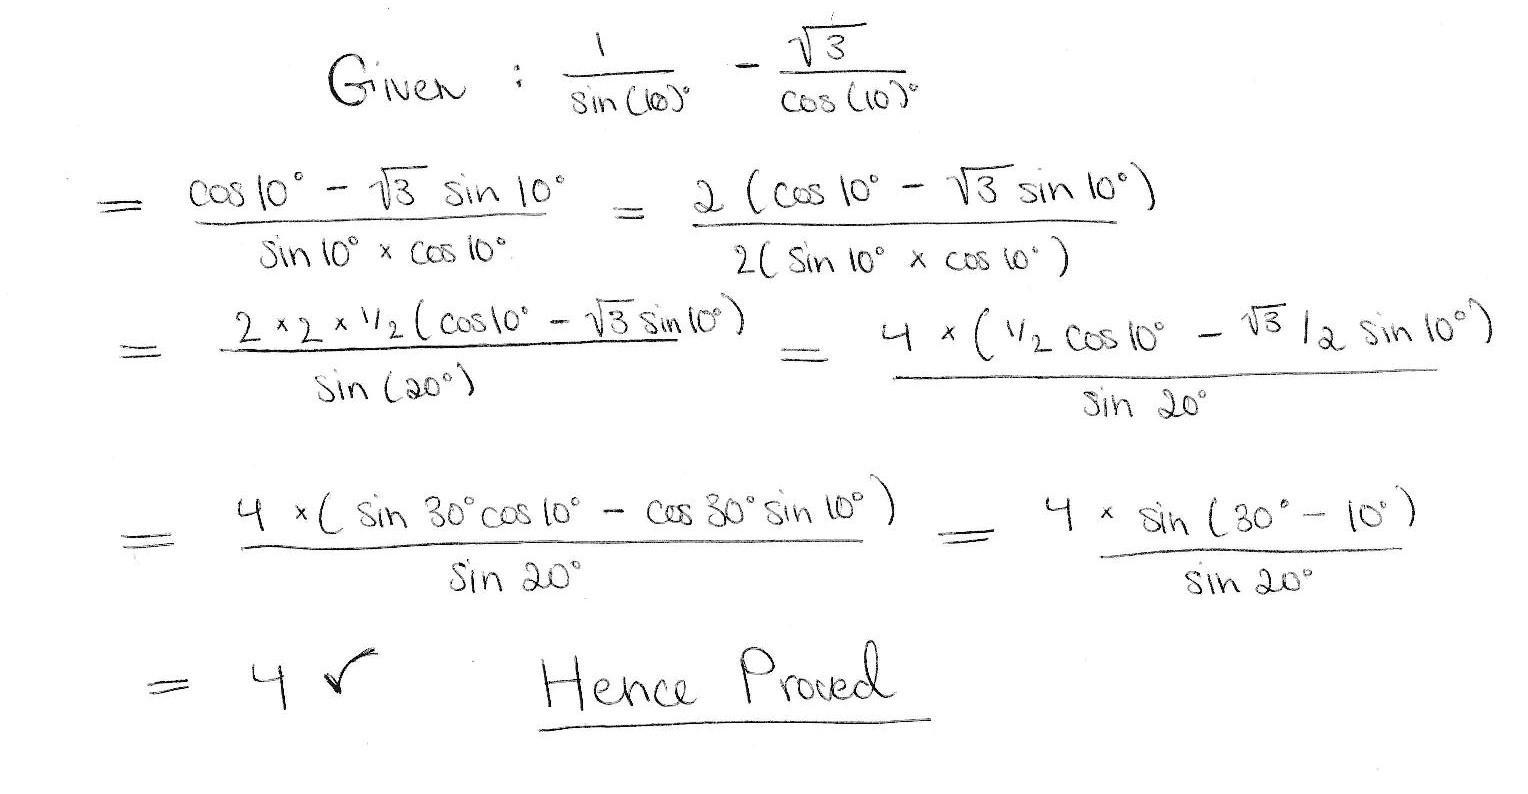 Given : 1/sin(10)° - √3/cos(10)°
= (cos10° - √3 sin 10°)/(sin 10° × cos 10°) = 2 (cos 10° - √3 sin 10°)/2( sin 10° × cos 10°)
= 2 × 2 × 1/2 ( cos10° - √3 sin 10°)/sin (20°) = 4 × ( 1/2 cos 10° - √3/2 sin 10°)/sin 20°
= 4 × ( sin 30° cos 10° - cos 30° sin 10°)/sin 20° = 4 × sin (30° - 10°)/sin 20°
= 4 ✓ Hence Proved